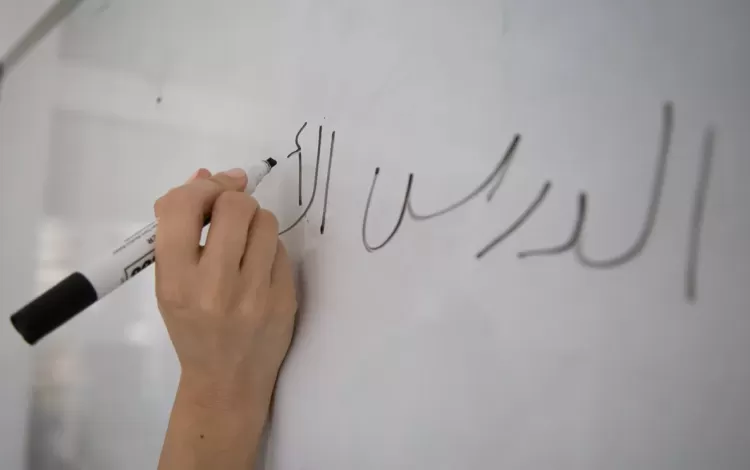 الدرس الأ